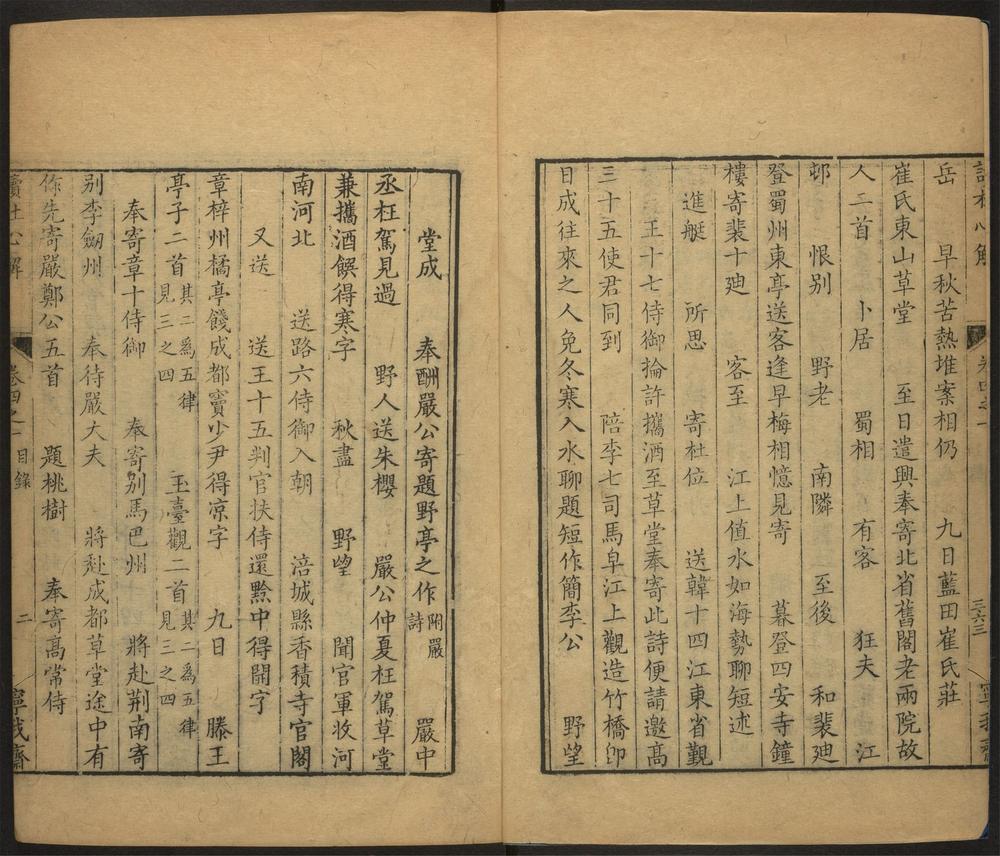 讀杜心解 卷四之一 三六三 寧我齋
岳 早秋苦熱堆案相仍 九日藍田崔氏莊
崔氏東山草堂 至日遣興奉寄北省舊閣老兩院故
人二首 卜居 蜀相 有客 狂夫 江
邨 恨别 野老 南隣 至後 和裴廸
登蜀州東亭送客逢早梅相憶見寄 暮登四安寺鐘
樓寄裴十廸 客至 江上值水如海勢聊短述
進艇 所思 寄杜位 送韓十四江東省覲
王十七侍御掄許攜酒至草堂奉寄此詩便請邀髙
三十五使君同到 陪李七司馬皁江上觀造竹橋卽
日成往來之人免冬寒入水聊題短作簡李公 野望
堂成 奉酬嚴公寄題野亭之作 附嚴詩 嚴中
丞枉駕見過 野人送朱櫻 嚴公仲夏枉駕草堂
兼攜酒饌得寒字 秋盡 野望 聞官軍收河
南河北 送路六侍御入朝 涪城縣香積寺官閣
又送 送王十五判官扶侍還黔中得開字
章梓州橘亭餞成都竇少尹得凉字 九日 滕王
亭子二首 其二爲五律見三之四 玉臺觀二首 其二爲五律見三之四
奉寄章十侍御 奉寄别馬巴州 將赴荆南寄
别李劒州 奉待嚴大夫 將赴成都草堂途中有
作先寄嚴鄭公五首 題桃樹 奉寄髙常侍
讀杜心解 卷四之一 目錄 二 寧我齋